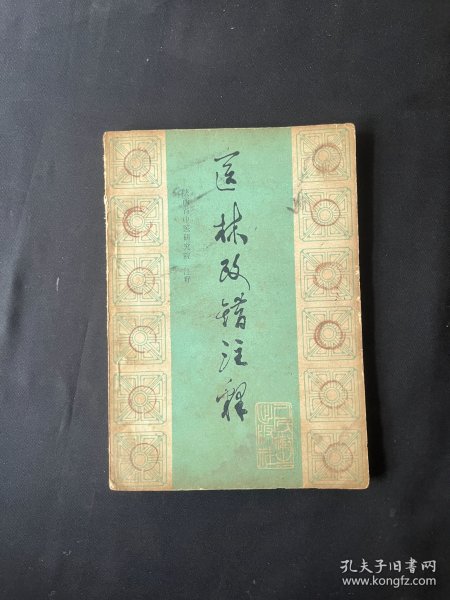 医林改错注释
陕西省中医研究院 注释
人民卫生出版社
孔夫子旧书网
www.kongfz.com